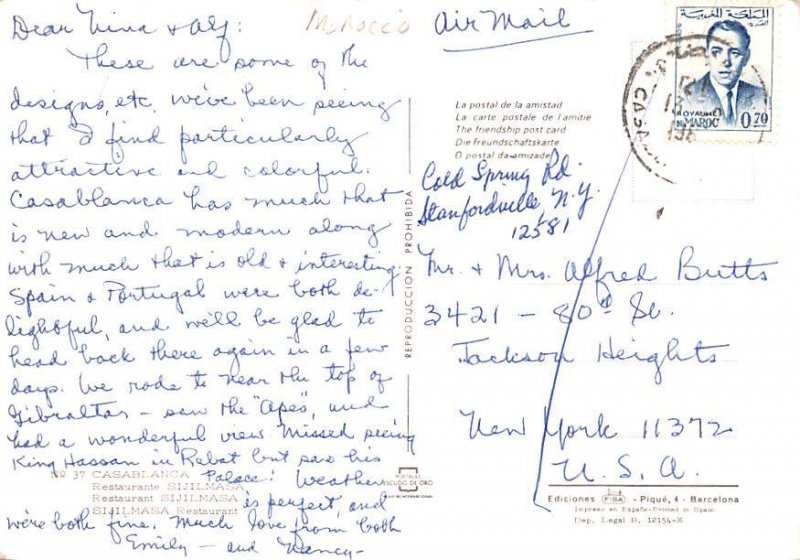 Dear Nina & Alf:
These are some of the
designs, etc. we've been seeing
that I find particularly
attractive and colorful.
Casablanca has much that
is new and modern along
with much that is old & interesting.
Spain & Portugal were both de-
lightful, and we'll be glad to
head back there again in a few
days. We rode to near the top of
Gibraltar – saw the "apes", and
had a wonderful view. Missed seeing
King Hassan in Rabat but saw his
Palace! Weather
is perfect, and
we're both fine. Much love from both
Emily – and Nancy –
No 37 CASABLANCA
Restaurante SIJILMASA
Restaurant SIJILMASA
SIJILMASA Restaurant
Morocco
Air Mail
المملكة المغربية
ROYAUME
DU MAROC 0,70
CASA
La postal de la amistad
La carte postale de l'amitié
The friendship post card
Die Freundschaftskarte
O postal da amizade
Cold Spring Rd.
Stanfordville N.Y.
12581
Mr. & Mrs. Alfred Butts
3421 – 80th St.
Jackson Heights
New York 11372
U.S.A.
REPRODUCCION PROHIBIDA
POSTALES
ESCUDO DE ORO
Ediciones FISA - Piqué, 4 - Barcelona
Impreso en España-Printed in Spain
Dep. Legal B, 12154-X